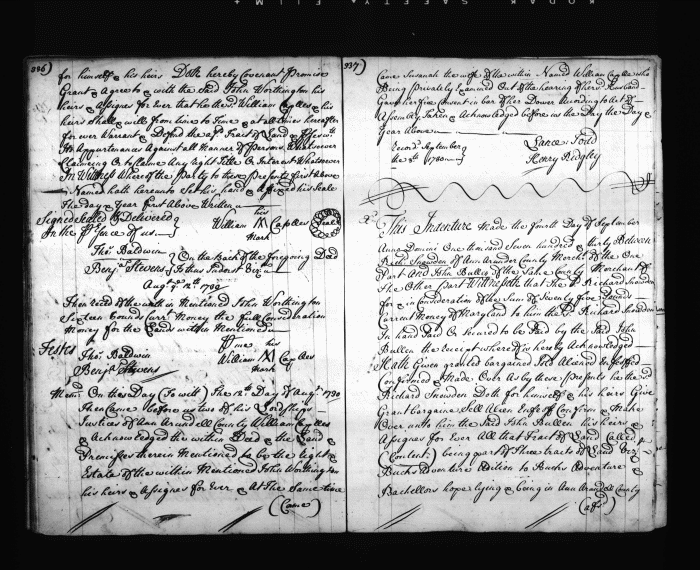 336)
for himself & his heirs Doth hereby Covenant Promise
Grant & agree to & with the Said John Worthington his
heirs & Assigns for Ever that he the sd William Capells & his
heirs Shall & will from time to Time & at all times hereafter
for ever Warrant & Defend the sd Tract of Land & Premises
Its Appertenances Against all Manner of Persons Whatsoever
Claiming Or to Claime Any right Title Or Interest Whatsoever
In Wittness Whereof the Party to these presents first Above
Named hath hereunto Set his hand & affixed his Seale
The day & Year first Above Written
Signed Sealed & Delivered
In the presence of us
his
William X Capelles Seal
Mark
Thos Baldwin
Benj Stevens
On the Back of the foregoing Deed
Is thus Indorst Vizt
Augst 12th 1730
Then recd of the within Mentioned John Worthington
Sixteen Pounds Curr Money the full Consideration
Money for the Lands within Mentioned
Testes
pr me his
William X Capelles
Mark
Thos Baldwin
Benj Stevens
Memd On this Day (To witt) The 12th Day of Augst 1730
Then Came before us two of his Lordships
Justices of Ann Arundell County William Capelles
& Acknowledged the within Deed & the Land &
Premisses therein Mentioned to be the right &
Estate of the within Mentioned John Worthington
his heirs & Assignes for Ever & At the Same time
(Came)
337)
Came Susanah the wife of the within Named William Capelles who
Being Privately Examined Out of the hearing of her Husband
Gave her free Consent in bar of her Dower According to Act of
Assembly Taken & Acknowledged before us the Day & the
Year Above
Lance Todd
Henry Ridgley
Recd September
the 8th 1730
This Indenture Made the fourth Day of September
Anno Domini One thousand Seven hundred & thirty Between
Richd Snowden of Ann Arunder County Mercht of the One
Part And John Bullen of the Same County Merchant of
The Other Part Wittnesseth that the sd Richard Snowden
for & in Consideration of the Sum of Twenty five Pounds
Current Money of Maryland to him the sd Richard Snowden
In hand Paid Or Secured to be Paid by the Said John
Bullen the receipt whereof is hereby Acknowledged
Hath Given granted bargained Sold Aliened Enfeoffed
Confirmed & Made Over & by these presents he the sd
Richard Snowden Doth for himself & his heirs Give
Grant bargaine Sell Alien Enfeoff Confirm & Make
Over unto him the Said John Bullen his heirs &
Assignes for Ever All that Tract of Land Called
(Content) being part of Three tracts of Land Vizt
Bucks Adventure Addition to Bucks Adventure
Bachellors hope lying & being in Ann Arundell County
(afsd)
KODAK SAFETY FILM